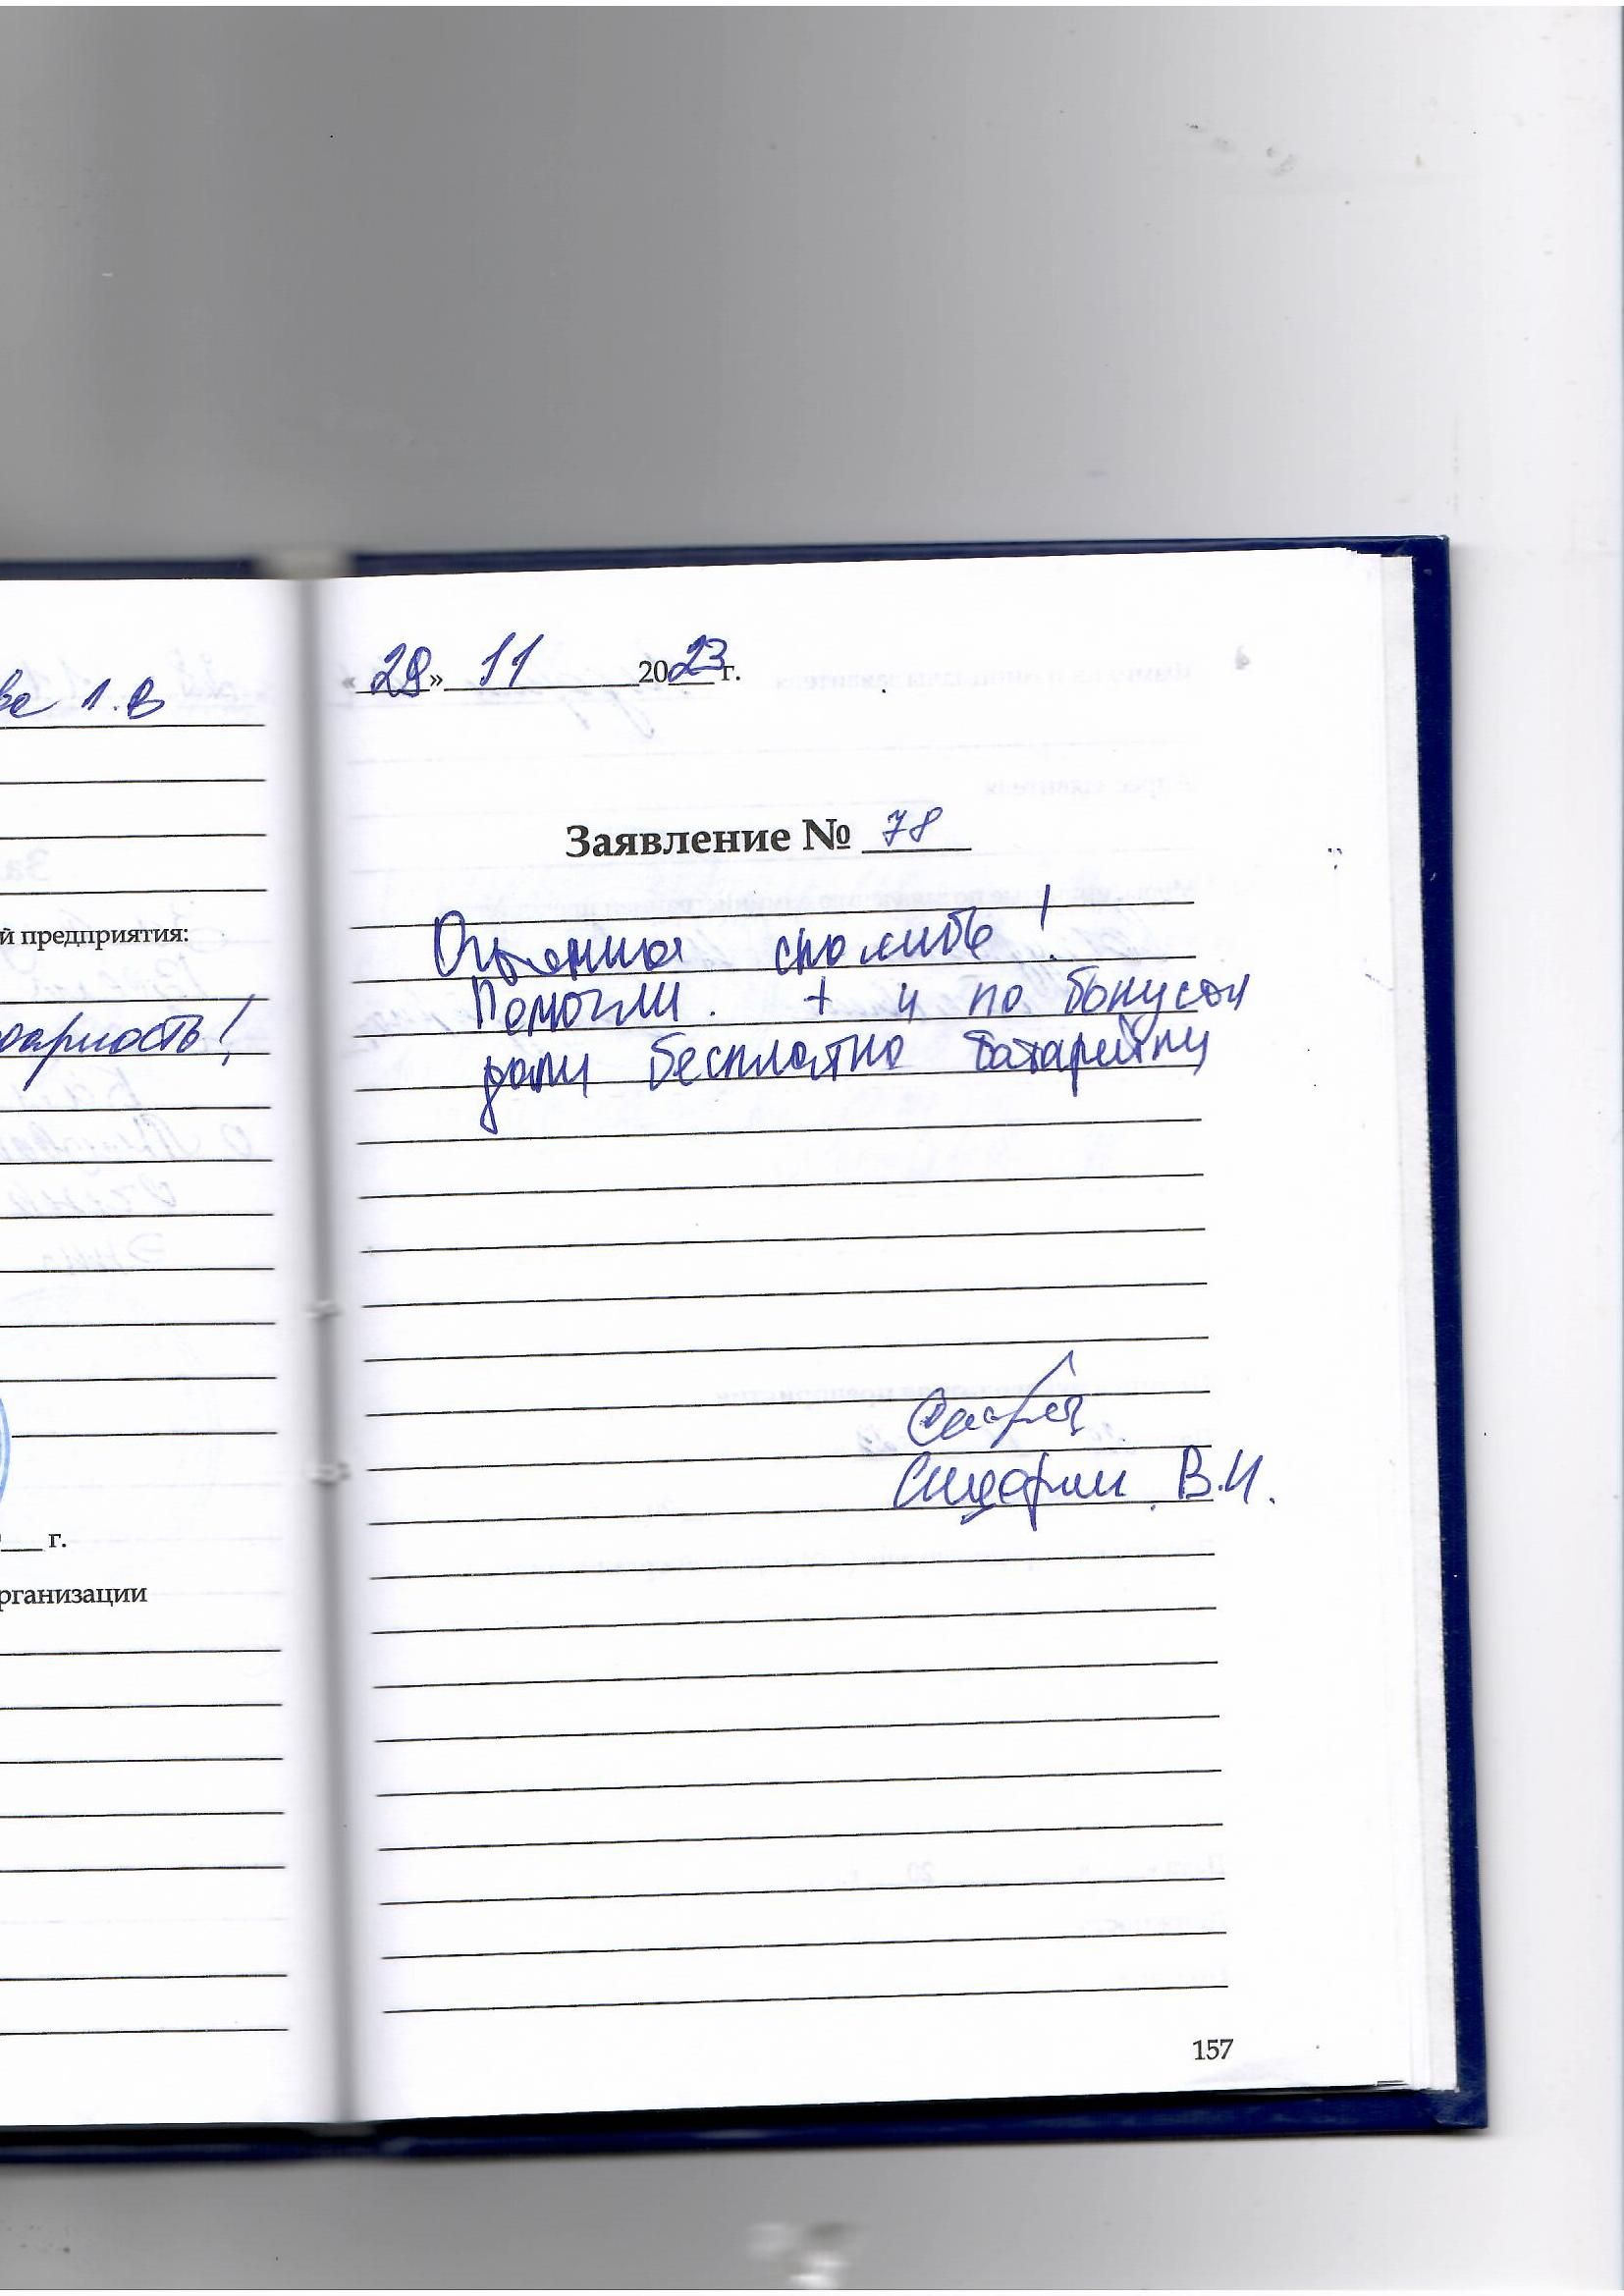 ва Л.В
й предприятия:
дарность!
г.
рганизации
«29» 11 2023 г.
Заявление № 78
Огромная спасибо!
Помогли. + и по бонусам
дали бесплатно батарейки
В.И.
157